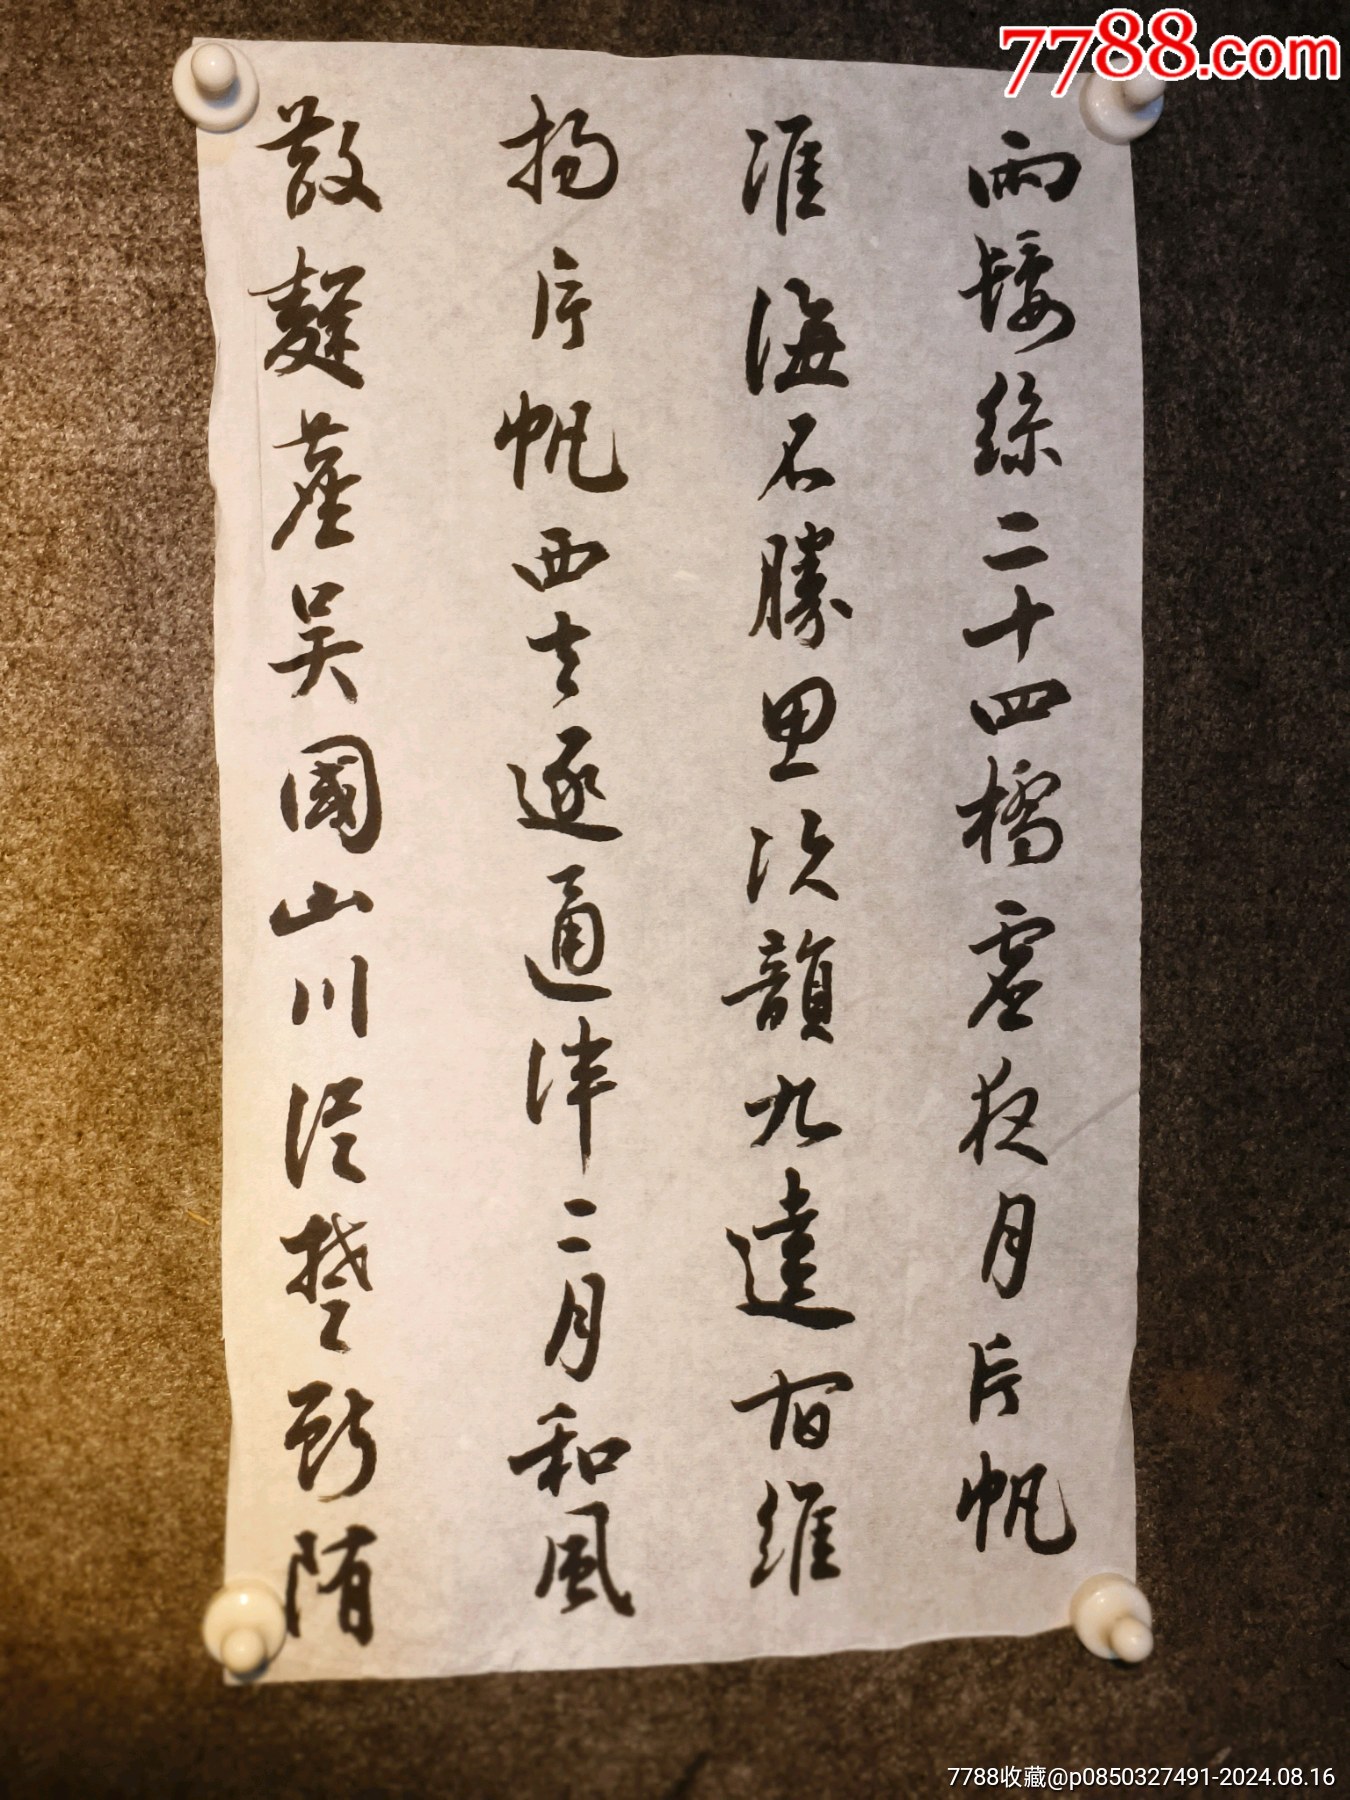 7788.com
兩絲二十四橋虛夜月片帆
淮海不勝思次韻九達宿維
揚片帆西去逐通津二月和風
散麴塵吳國山川從楚斷隋
7788收藏@p0850327491-2024.08.16